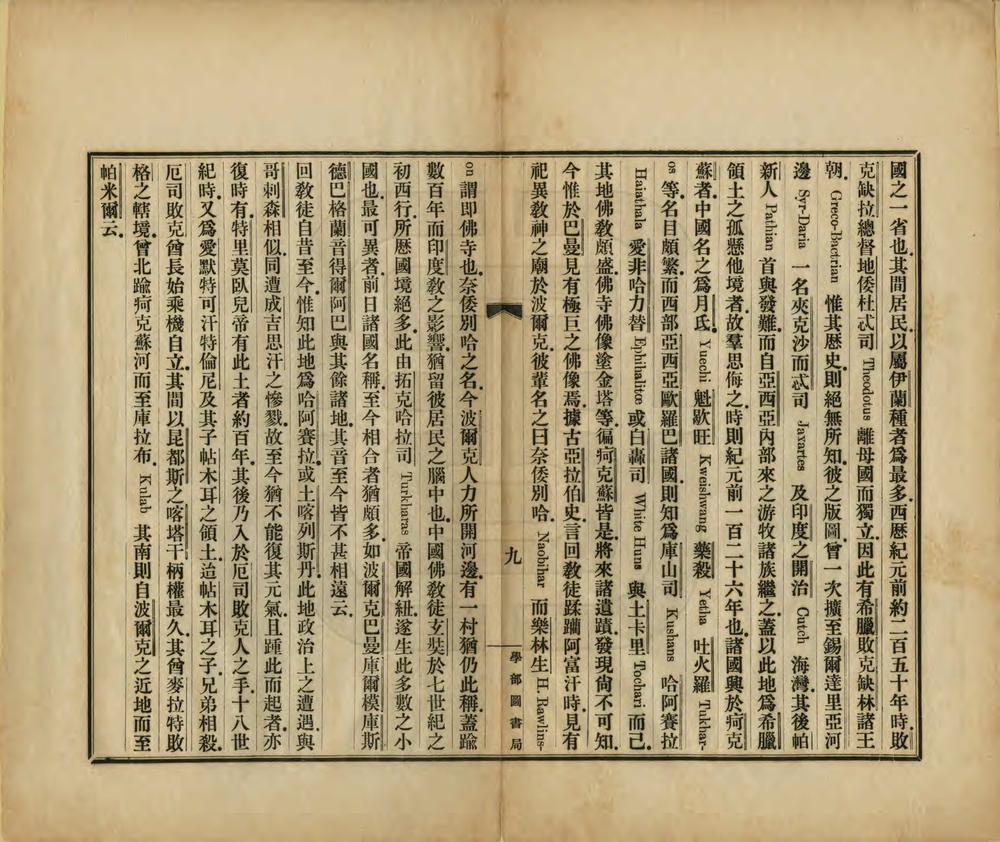 國之一省也其間居民以屬伊蘭種者爲最多西歷紀元前約二百五十年時敗
克缺拉總督地倭杜忒司 Theodotus 離母國而獨立因此有希臘敗克缺林諸王
朝 Greco-Bactrian 惟其歷史則絕無所知彼之版圖曾一次擴至錫爾達里亞河
邊 Syr-Daria 一名夾克沙而忒司 Jaxartes 及印度之開治 Cutch 海灣其後帕
新人 Pathian 首與發難而自亞西亞內部來之游牧諸族繼之蓋以此地爲希臘
領土之孤懸他境者故羣思侮之時則紀元前一百二十六年也諸國興於疴克
蘇者中國名之爲月氏 Yuechi 魁歇旺 Kweishwang 藥殺 Yetha 吐火羅 Tukhar-
os 等名目頗繁而西部亞西亞歐羅巴諸國則知爲庫山司 Kushans 哈阿賽拉
Haiathala 愛非哈力替 Ephthalitœ 或白轟司 White Huns 與土卡里 Tochari 而已
其地佛敎頗盛佛寺佛像塗金塔等徧疴克蘇皆是將來諸遺蹟發現尙不可知
今惟於巴曼見有極巨之佛像焉據古亞拉伯史言回敎徒蹂躪阿富汗時見有
祀異敎神之廟於波爾克彼輩名之曰奈倭別哈 Naobihar 而樂林生 H. Rawlins-
九
學部圖書局
on 謂即佛寺也奈倭別哈之名今波爾克人力所開河邊有一村猶仍此稱蓋踰
數百年而印度敎之影響猶留彼居民之腦中也中國佛敎徒玄奘於七世紀之
初西行所歷國境絕多此由拓克哈拉司 Turkharas 帝國解紐遂生此多數之小
國也最可異者前日諸國名稱至今相合者猶頗多如波爾克巴曼庫爾模庫斯
德巴格蘭音得爾阿巴與其餘諸地其音至今皆不甚相遠云
回敎徒自昔至今惟知此地爲哈阿賽拉或土喀列斯丹此地政治上之遭遇與
哥剌森相似同遭成吉思汗之慘戮故至今猶不能復其元氣且踵此而起者亦
復時有特里莫臥兒帝有此土者約百年其後乃入於厄司敗克人之手十八世
紀時又爲愛默特可汗特倫尼及其子帖木耳之領土迨帖木耳之子兄弟相殺
厄司敗克酋長始乘機自立其間以昆都斯之喀塔干柄權最久其酋麥拉特敗
格之轄境曾北踰疴克蘇河而至庫拉布 Kulab 其南則自波爾克之近地而至
帕米爾云